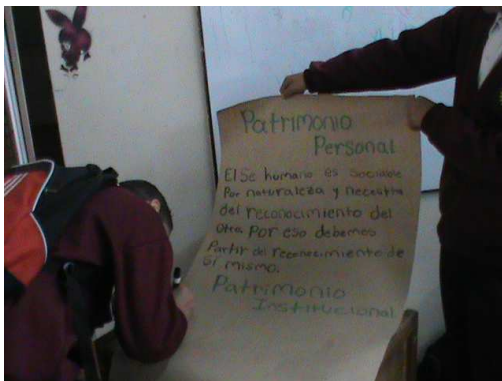 Patrimonio
Personal
El Se humano es Sociable
Por naturaleza y necesita
del reconocimiento del
Otro Por eso debemos
Partir del reconocimiento de
Sí mismo.
Patrimonio
Institucional